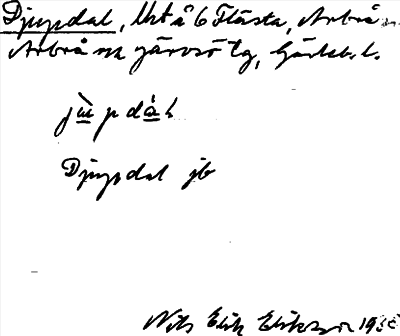 Djupdal, Utå 6 Flästa, Arbrå sn.
Arbrå och Järvsö tg, Gävleb. l.
jùpdàl
Djupdal jb
Nils Erik Eriksson 19